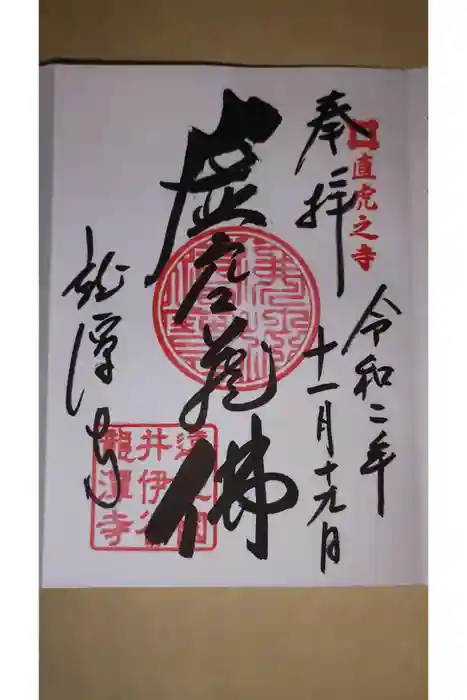 直虎之寺
奉拝
令和二年
十一月十九日
虚空蔵佛
龍潭寺
遠江國
井伊谷
龍潭寺